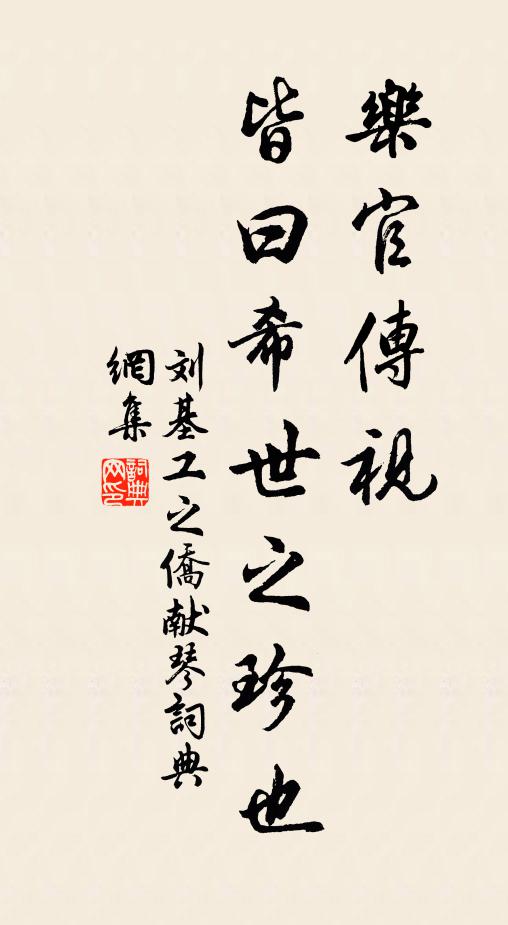 樂官傳視
皆曰希世之珍也
刘基工之僑献琴詞典
網集
詞典
网印